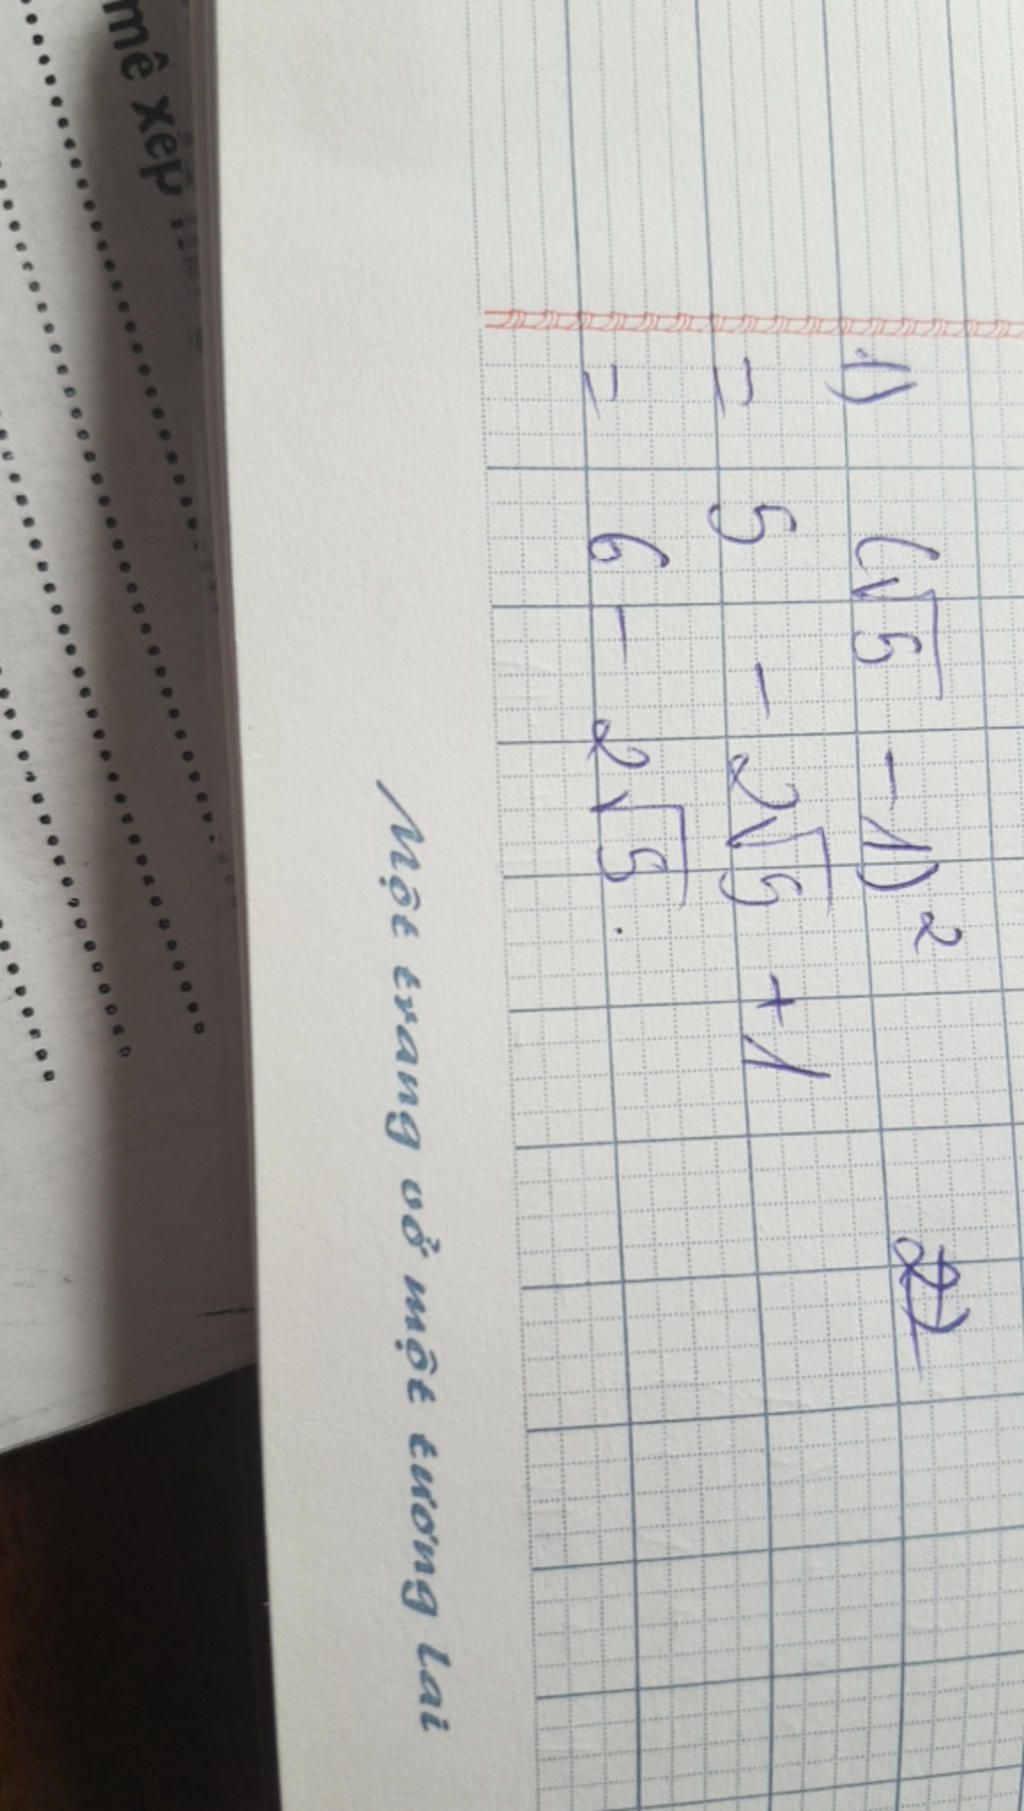 1) (√5 - 1)²
2)
= 5 - 2√5 + 1
= 6 - 2√5.
Một trang vở một tương lai
mê xếp